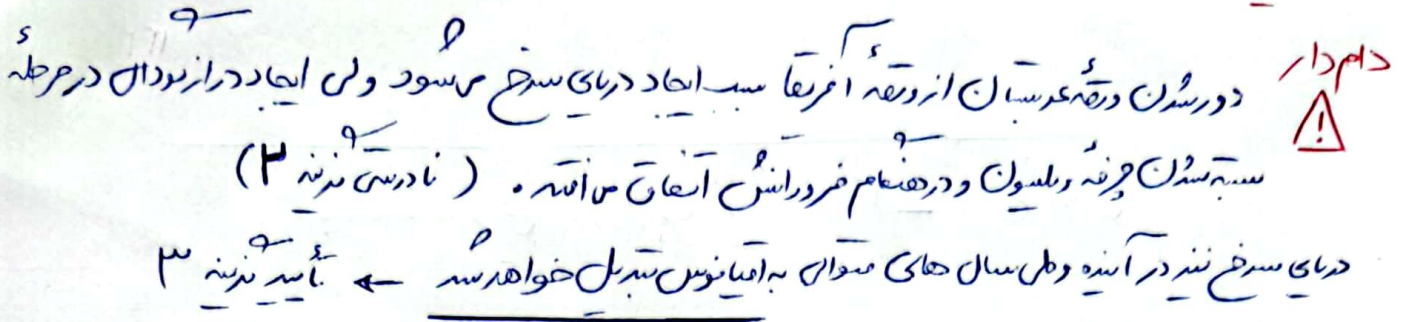 دام‌دار
دور شدن ورقهٔ عربستان از ورقهٔ آفریقا سبب ایجاد دریای سرخ می‌شود ولی ایجاد درازگودال در مرحلهٔ
بسته شدن چرخه ویلسون و در هنگام فرورانش اتفاق می‌افتد. (نادرستی گزینه ۲)
دریای سرخ نیز در آینده و طی سال های متوالی به اقیانوس تبدیل خواهد شد ← تأیید گزینه ۳